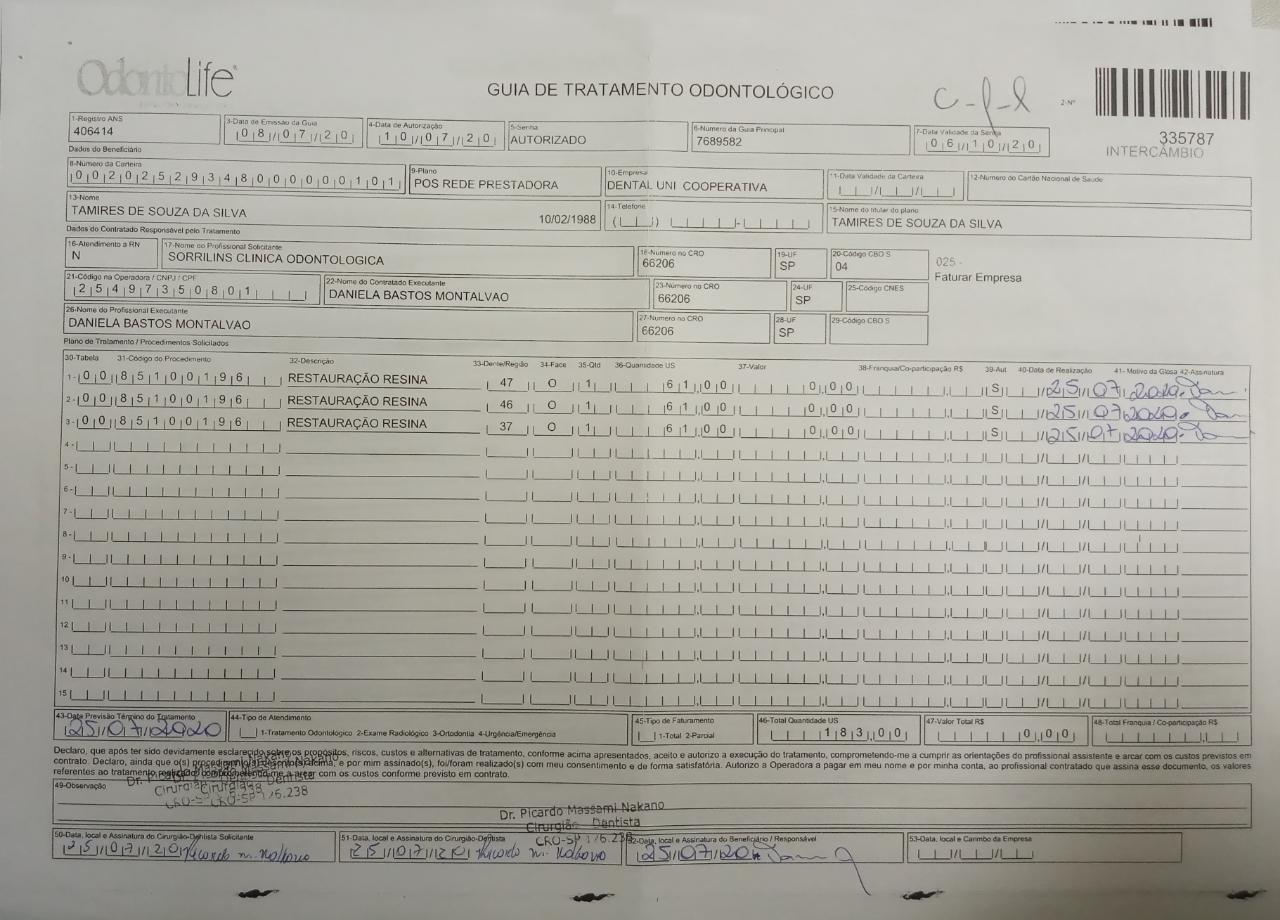 OdontoLife
GUIA DE TRATAMENTO ODONTOLÓGICO
2-Nº
335787
INTERCÂMBIO
1-Registro ANS
406414
3-Data de Emissão da Guia
08/07/20
4-Data de Autorização
10/07/20
5-Senha
AUTORIZADO
6-Número da Guia Principal
7689582
7-Data Validade da Senha
06/10/20
Dados do Beneficiário
8-Número da Carteira
00202529348000000101
9-Plano
POS REDE PRESTADORA
10-Empresa
DENTAL UNI COOPERATIVA
11-Data Validade da Carteira
12-Número do Cartão Nacional de Saúde
13-Nome
TAMIRES DE SOUZA DA SILVA 10/02/1988
14-Telefone
15-Nome do titular do plano
TAMIRES DE SOUZA DA SILVA
Dados do Contratado Responsável pelo Tratamento
16-Atendimento a RN
N
17-Nome do Profissional Solicitante
SORRILINS CLINICA ODONTOLOGICA
18-Número no CRO
66206
19-UF
SP
20-Código CBO S
04
025 -
Faturar Empresa
21-Código na Operadora / CNPJ / CPF
25497350801
22-Nome do Contratado Executante
DANIELA BASTOS MONTALVAO
23-Número no CRO
66206
24-UF
SP
25-Código CNES
26-Nome do Profissional Executante
DANIELA BASTOS MONTALVAO
27-Número no CRO
66206
28-UF
SP
29-Código CBO S
Plano de Tratamento / Procedimentos Solicitados
30-Tabela 31-Código do Procedimento 32-Descrição 33-Dente/Região 34-Face 35-Qtd 36-Quantidade US 37-Valor 38-Franquia/Co-participação R$ 39-Aut 40-Data de Realização 41- Motivo da Glosa 42-Assinatura
1- 00 85100196 RESTAURAÇÃO RESINA 47 O 1 61,00 0,00 S 25/07/2020
2- 00 85100196 RESTAURAÇÃO RESINA 46 O 1 61,00 0,00 S 25/07/2020
3- 00 85100196 RESTAURAÇÃO RESINA 37 O 1 61,00 0,00 S 25/07/2020
4-
5-
6-
7-
8-
9-
10
11
12
13
14
15
43-Data Previsão Término do Tratamento
25/07/2020
44-Tipo de Atendimento
1-Tratamento Odontológico 2-Exame Radiológico 3-Ortodontia 4-Urgência/Emergência
45-Tipo de Faturamento
1-Total 2-Parcial
46-Total Quantidade US
183,00
47-Valor Total R$
0,00
48-Total Franquia / Co-participação R$
Declaro, que após ter sido devidamente esclarecido sobre os propósitos, riscos, custos e alternativas de tratamento, conforme acima apresentados, aceito e autorizo a execução do tratamento, comprometendo-me a cumprir as orientações do profissional assistente e arcar com os custos previstos em
contrato. Declaro, ainda que o(s) procedimento(s) descrito(s) acima, e por mim assinado(s), foi/foram realizado(s) com meu consentimento e de forma satisfatória. Autorizo a Operadora a pagar em meu nome e por minha conta, ao profissional contratado que assina esse documento, os valores
referentes ao tratamento realizado comprometendo-me a arcar com os custos conforme previsto em contrato.
49-Observação
Cirurgião Dentista
CRO-SP 176.238
Dr. Picardo Massami Nakano
Cirurgião Dentista
CRO-SP 176.238
50-Data, local e Assinatura do Cirurgião-Dentista Solicitante
25/07/20
51-Data, local e Assinatura do Cirurgião-Dentista
25/07/20
52-Data, local e Assinatura do Beneficiário / Responsável
25/07/20
53-Data, local e Carimbo da Empresa